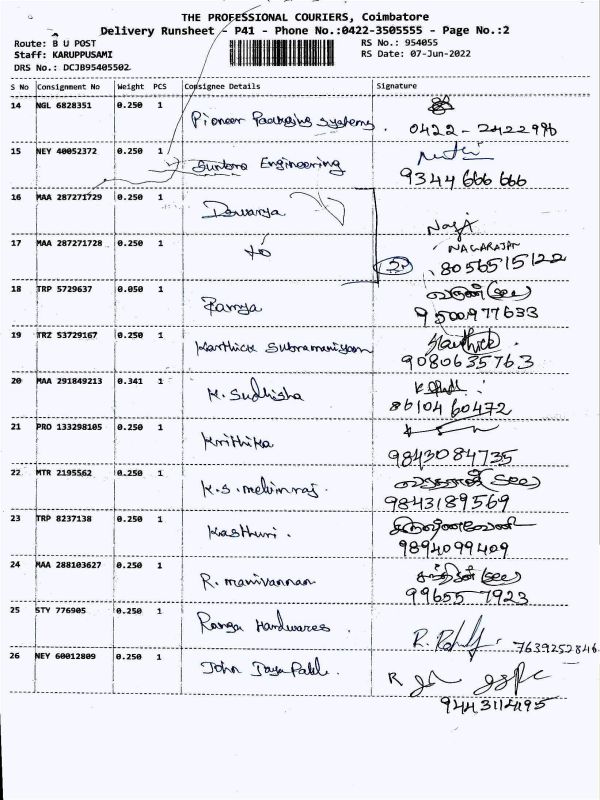 THE PROFESSIONAL COURIERS, Coimbatore
Delivery Runsheet - P41 - Phone No.:0422-3505555 - Page No.:2
Route: B U POST
RS No.: 954055
Staff: KARUPPUSAMI
RS Date: 07-Jun-2022
DRS No.: DCJB95405502
S No Consignment No Weight PCS Consignee Details Signature
14 NGL 6828351 0.250 1 Pioneer Packaging Systems. 0422-2422996
15 NEY 40052372 0.250 1 Engineering
9344 666 666
16 MAA 287271729 0.250 1
Naga
17 MAA 287271728 0.250 1 NAGARAJAN
8056515122
18 TRP 5729637 0.050 1 Ramya (See)
9500977633
19 TRZ 53729167 0.250 1 Karthick Subramaniyam Karthick
9080635763
20 MAA 291849213 0.341 1 K. Sudhisha
8610460472
21 PRO 133298105 0.250 1 Krithika
9843084735
22 MTR 2195562 0.250 1 K.S. melvinraj. (See)
9843189569
23 TRP 8237138 0.250 1 Kasthuri.
9894099409
24 MAA 288103627 0.250 1 R. manivannan (See)
99655 7923
25 STY 776905 0.250 1 Ranga Hardwares.
7639252846
26 NEY 60012809 0.250 1 John
9443114195